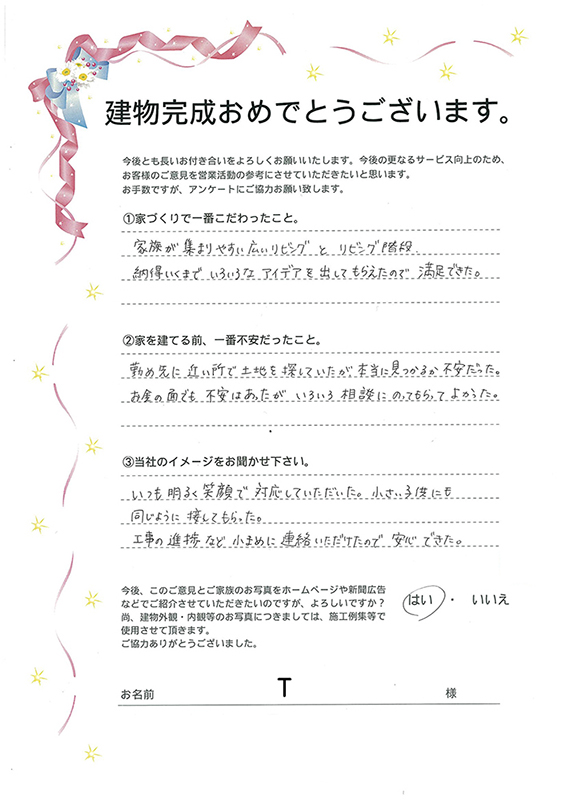 建物完成おめでとうございます。
今後とも長いお付き合いをよろしくお願いいたします。今後の更なるサービス向上のため、
お客様のご意見を営業活動の参考にさせていただきたいと思います。
お手数ですが、アンケートにご協力お願い致します。
①家づくりで一番こだわったこと。
家族が集まりやすい広いリビングと リビング階段、
納得いくまで いろいろな アイデアを出してもらえたので 満足できた。
②家を建てる前、一番不安だったこと。
勤め先に近い所で土地を探していたが本当に見つかるか不安だった。
お金の面でも不安はあったが いろいろ 相談にのってもらってよかった。
③当社のイメージをお聞かせ下さい。
いつも明るく笑顔で対応していただいた。小さい子供にも
同じように接してもらった。
工事の進捗など小まめに連絡いただけたので安心できた。
今後、このご意見とご家族のお写真をホームページや新聞広告
などでご紹介させていただきたいのですが、よろしいですか？
はい ・ いいえ
尚、建物外観・内観等のお写真につきましては、施工例集等で
使用させて頂きます。
ご協力ありがとうございました。
お名前 T 様